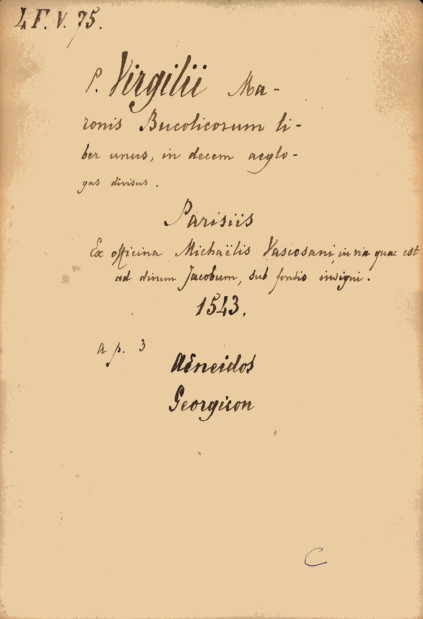 L F. V. 75.
P. Virgilii Ma-
ronis Bucolicorum li-
ber unus, in decem aeglo-
gas divisus.
Parisiis
Ex officina Michaëlis Vascosani, in via quae est
ad divum Jacobum, sub fontis insigni.
1543.
a p. 3
Aeneidos
Georgicon
C